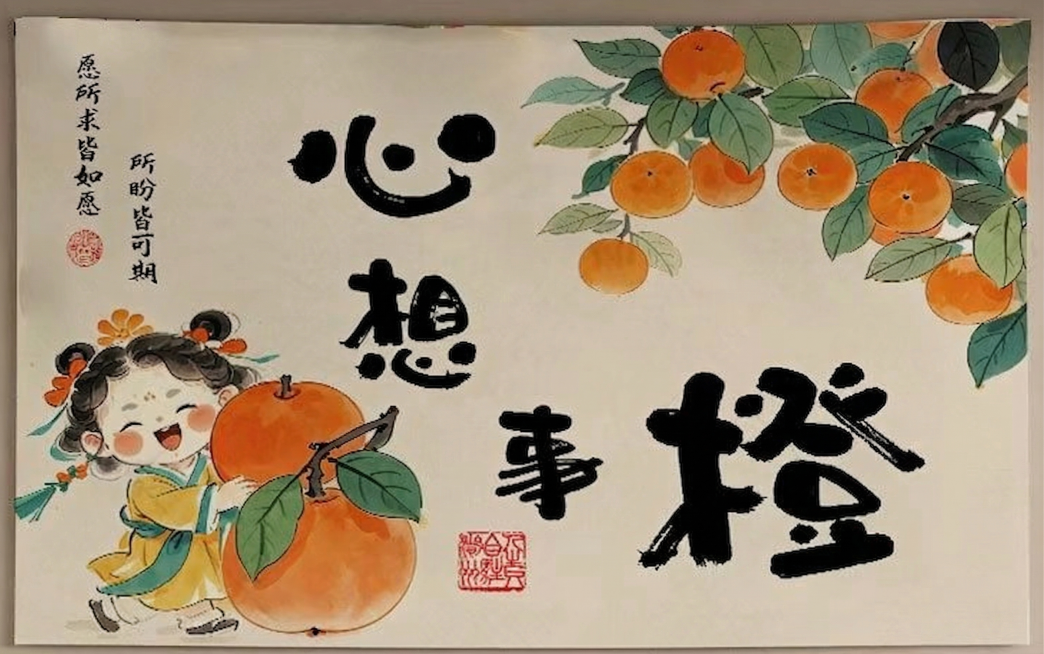 心想事橙
愿所求皆如愿
所盼皆可期